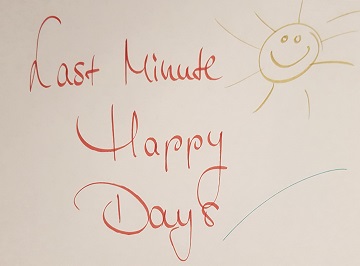 Last Minute
Happy
Days